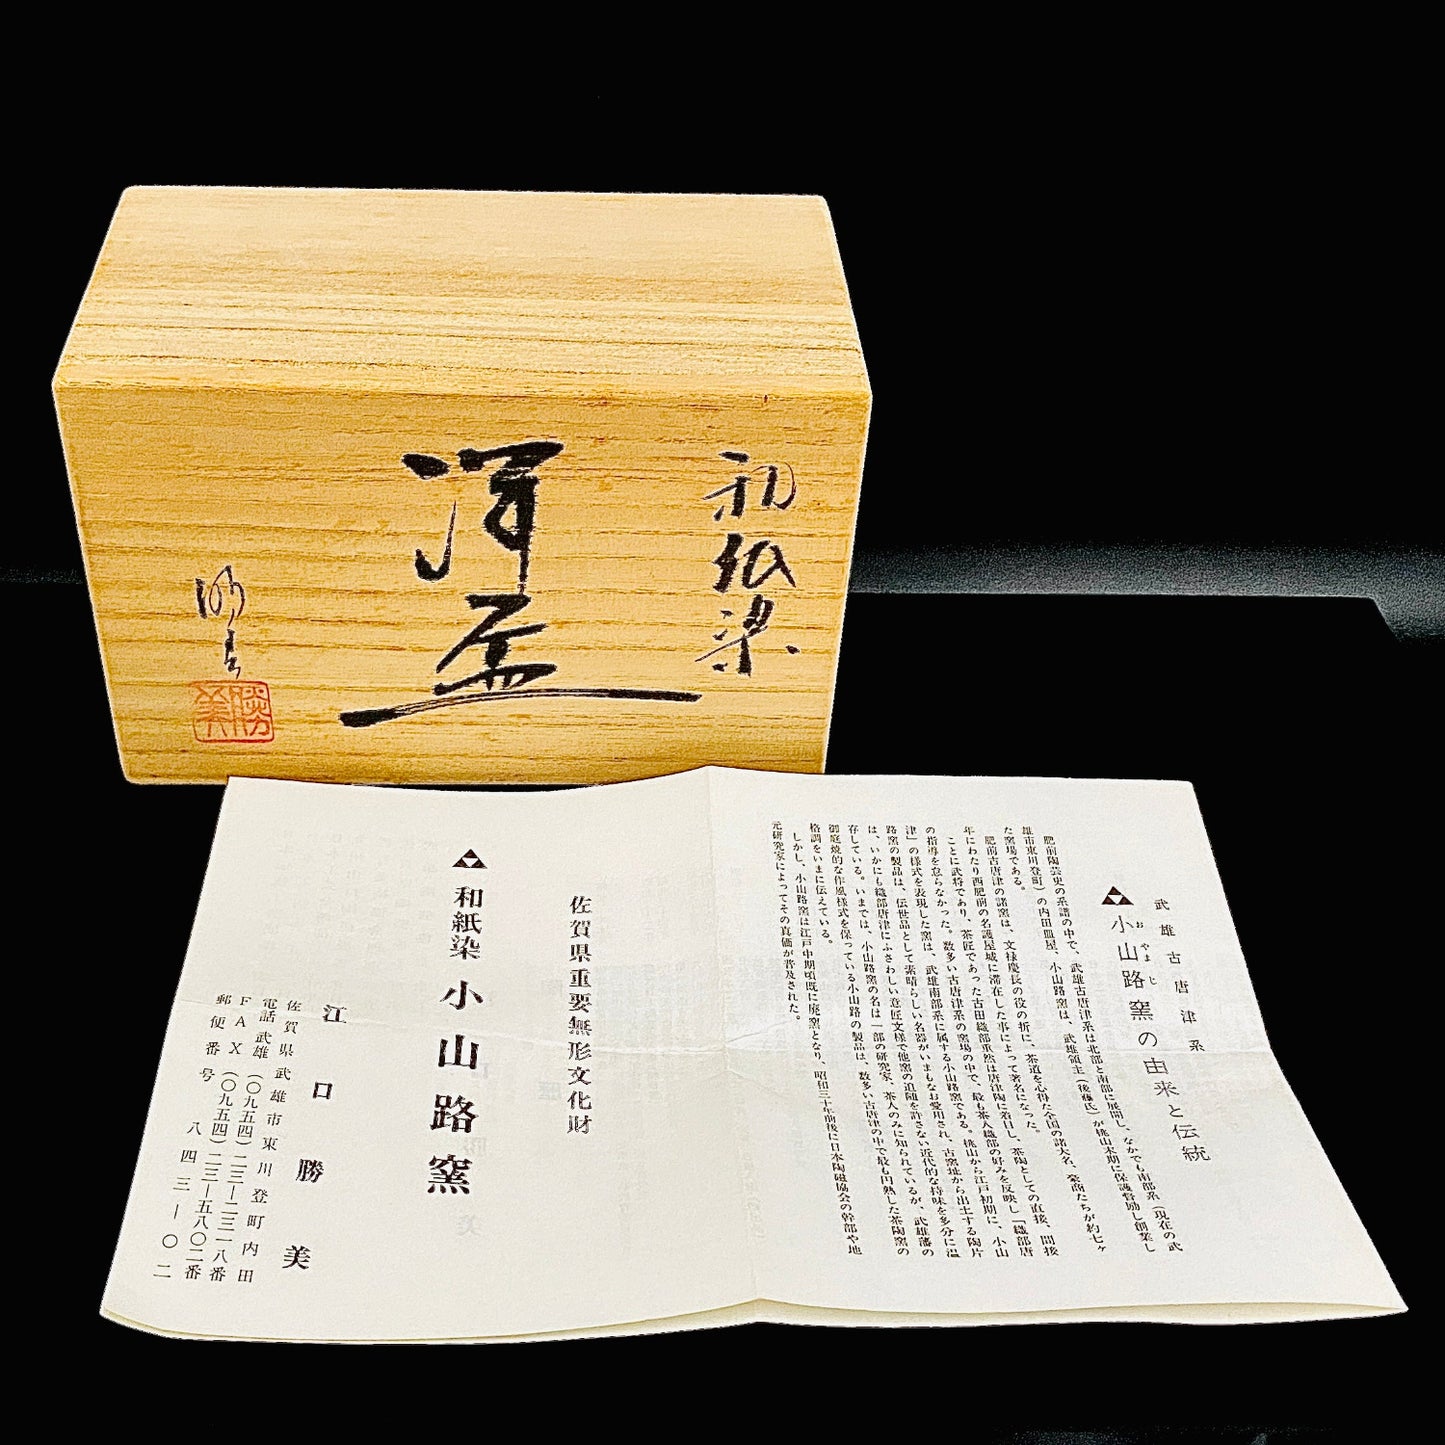 和紙染
洋盃
勝美
勝美
武雄古唐津系
小山路窯の由来と伝統
おやまじ
肥前陶芸史の系譜の中で、武雄古唐津系は北部と南部に展開し、なかでも南部系(現在の武
雄市東川登町)の内田皿屋、小山路窯は、武雄領主(後藤氏)が桃山末期に保護督励し創業し
た窯場である。
肥前古唐津の諸窯は、文禄慶長の役の折に、茶道を心得た全国の諸大名、豪商たちが約七ヶ
年にわたり西肥前の名護屋城に滞在した事によって著名になった。
ことに武将であり、茶匠であった古田織部重然は唐津陶に着目し、茶陶としての直接、間接
の指導を怠らなかった。数多い古唐津系の窯場の中で、最も茶人織部の好みを反映し「織部唐
津」の様式を表現した窯は、武雄南部系に属する小山路窯である。桃山から江戸初期に、小山
路窯の製品は、伝世品として素晴らしい名器がいまもなお愛用され、古窯址から出土する陶片
は、いかにも織部唐津にふさわしい意匠文様で他窯の追随を許さない近代的な持味を多分に温
存している。いまでは、小山路窯の名は一部の研究家、茶人のみに知られているが、武雄藩の
御庭焼的な作風様式を保っている小山路の製品は、数多い古唐津の中で最も円熟した茶陶窯の
格調をいまに伝えている。
しかし、小山路窯は江戸中期頃既に廃窯となり、昭和三十年前後に日本陶磁協会の幹部や地
元研究家によってその真価が普及された。
佐賀県重要無形文化財
和紙染 小山路窯
江口勝美
佐賀県武雄市東川登町内田
電話 武雄(〇九五四)二三―二三一八番
FAX(〇九五四)二三―五八〇二番
郵便番号 八四三―〇二